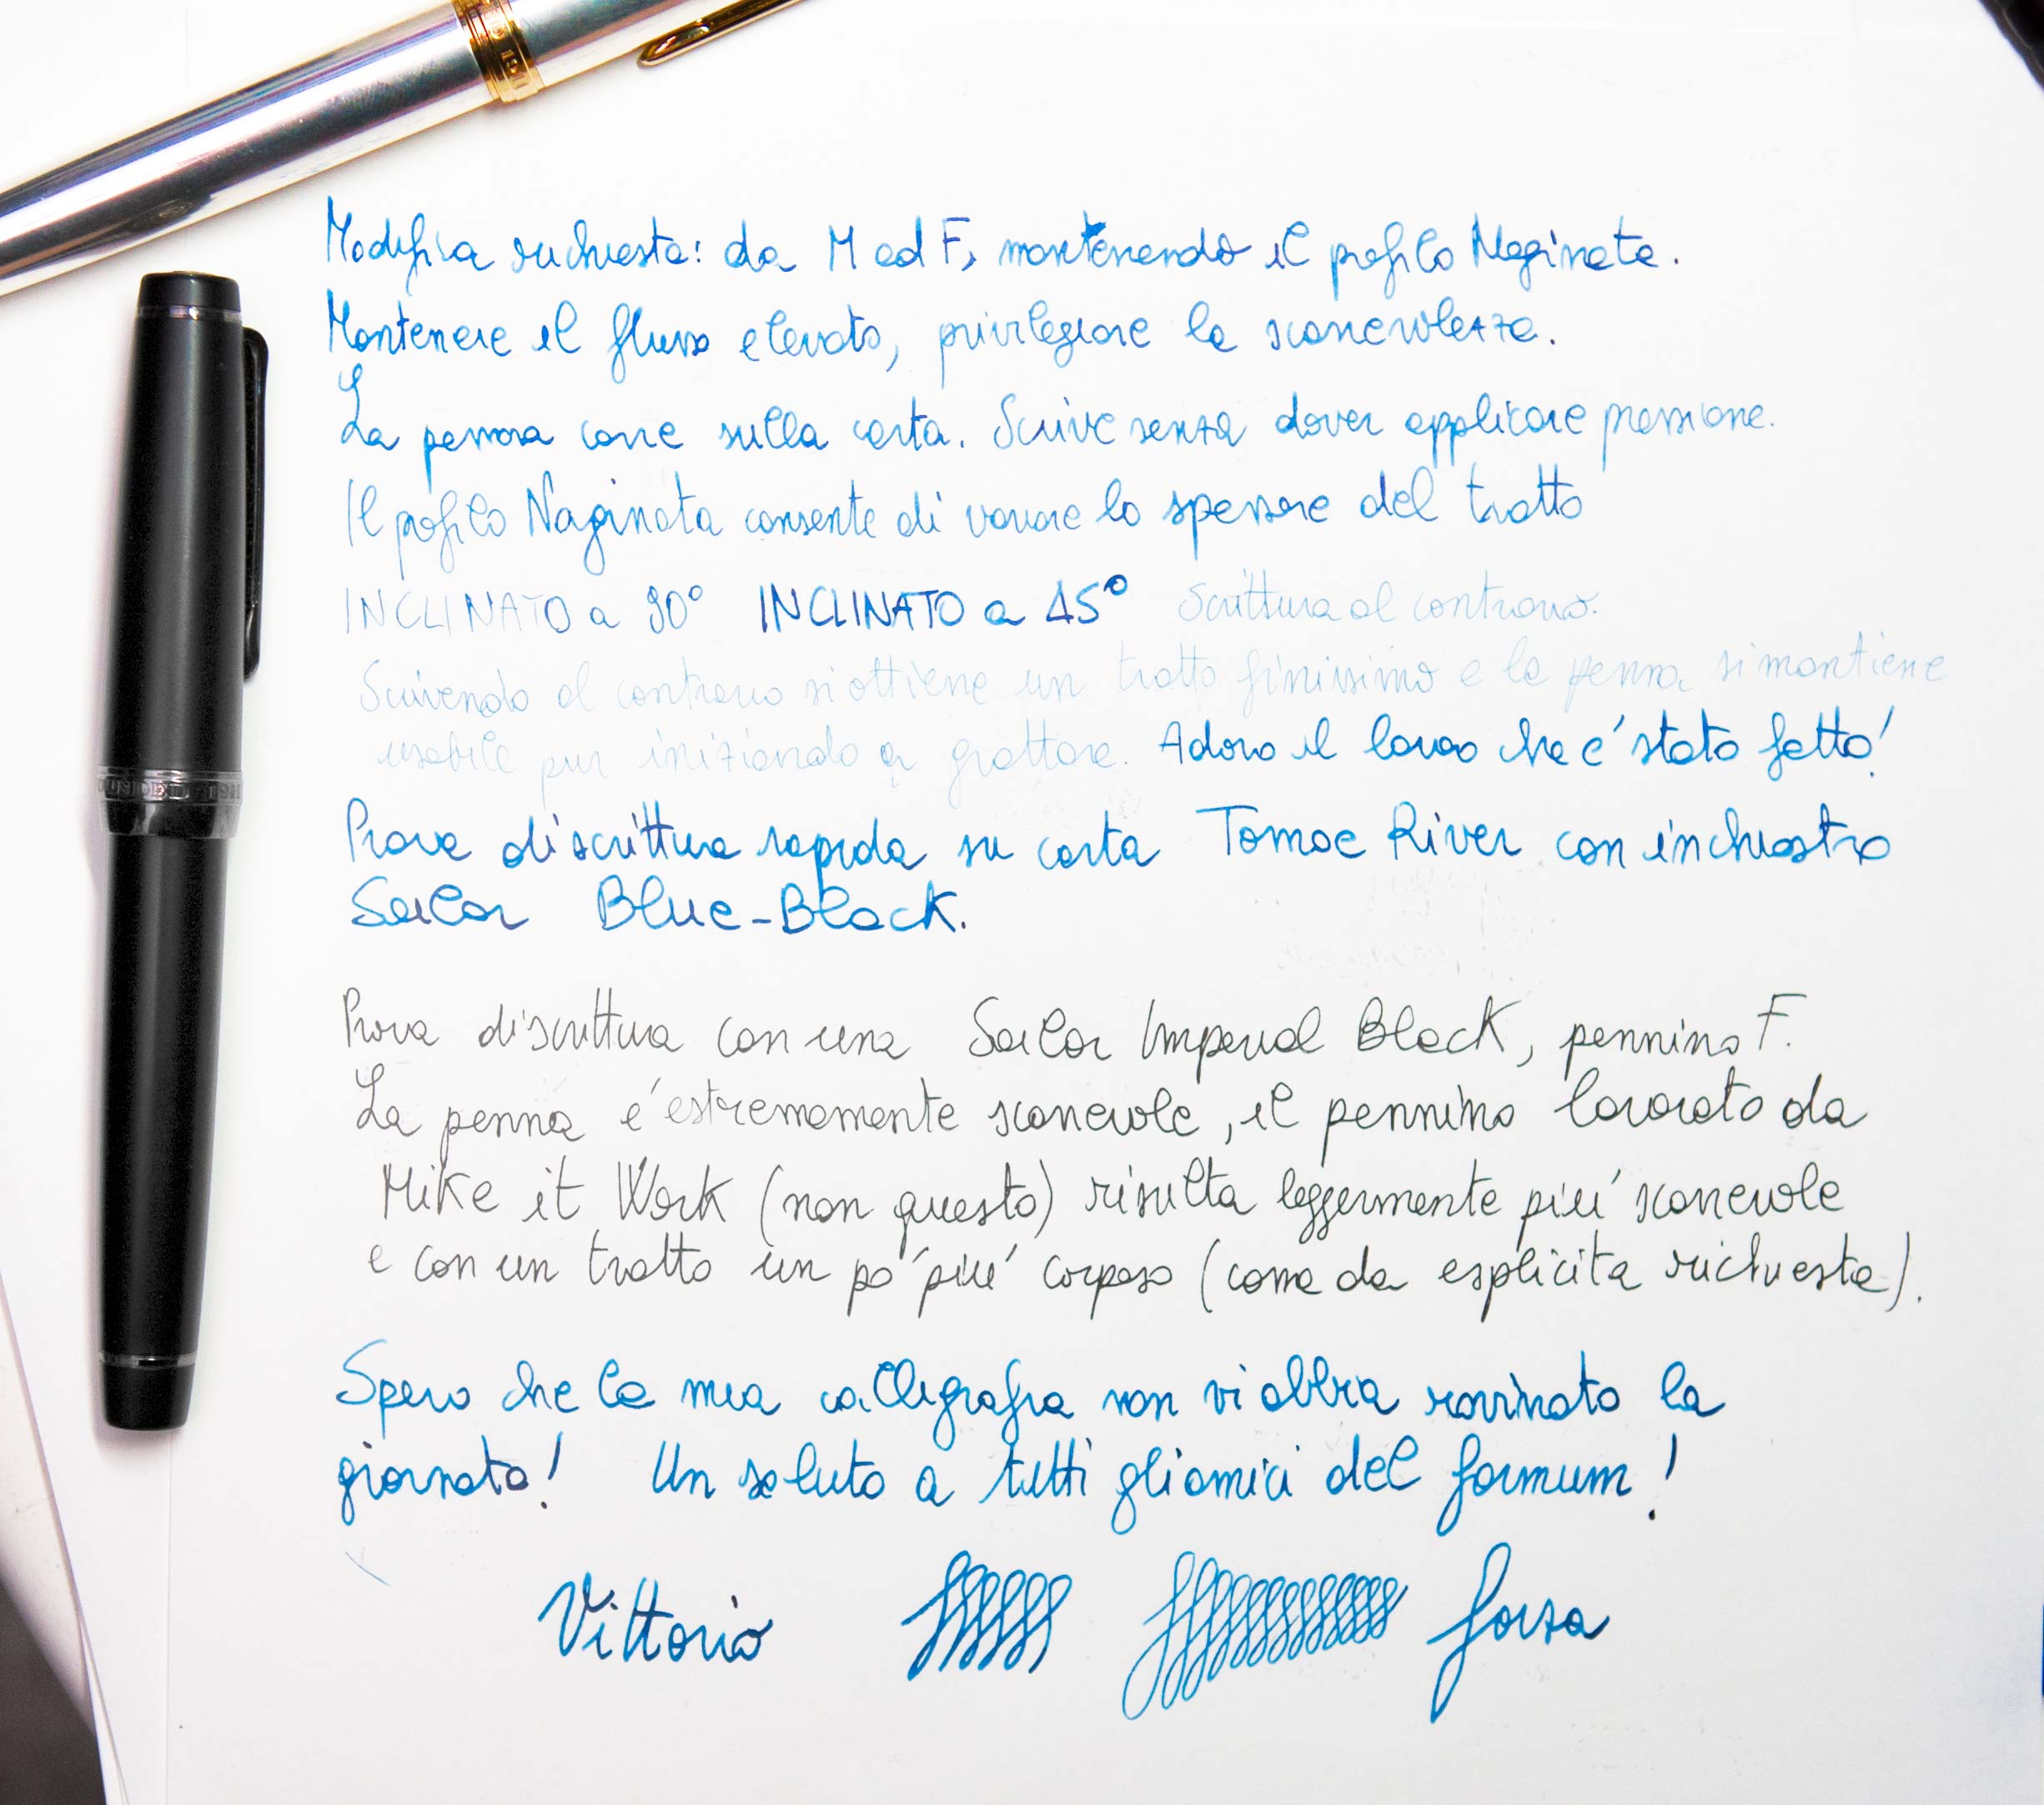 Modifica richiesta: da M ad F, mantenendo il profilo Naginata.
Mantenere il flusso elevato, privilegiare la scorrevolezza.
La penna corre sulla carta. Scrive senza dover applicare pressione.
Il profilo Naginata consente di variare lo spessore del tratto
INCLINATO a 90° INCLINATO a 45° Scrittura al contrario.
Scrivendo al contrario si ottiene un tratto finissimo e la penna si mantiene
usabile pur iniziando a grattare. Adoro il lavoro che e' stato fatto!
Prova di scrittura rapida su carta Tomoe River con inchiostro
Sailor Blue-Black.
Prova di scrittura con una Sailor Imperial Black, pennino F.
La penna e' estremamente scorrevole, il pennino lavorato da
Mike it Work (non questo) risulta leggermente piu' scorrevole
e con un tratto un po' piu' corposo (come da esplicita richiesta).
Spero che la mia calligrafia non vi abbia rovinato la
giornata! Un saluto a tutti gli amici del formum!
Vittorio